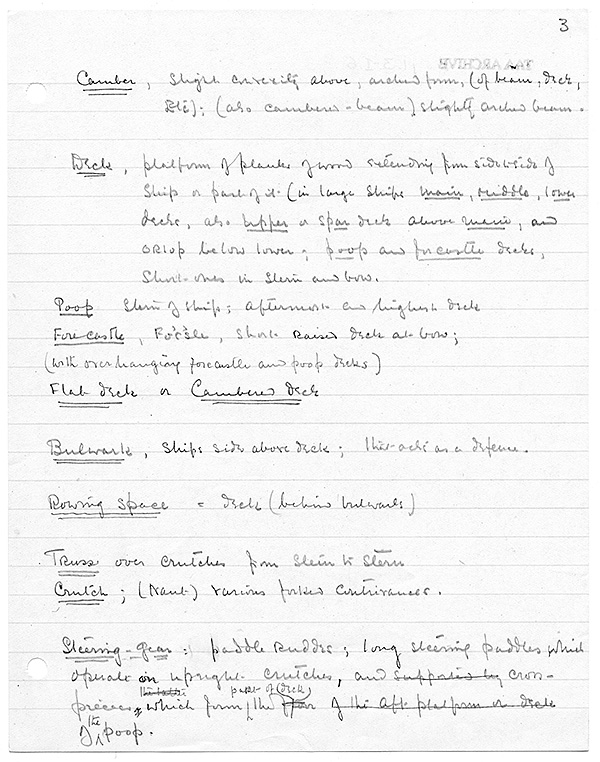 3
TAA ARCHIVE
Camber, Slight convexity above, arched form, (of beam, deck,
etc); (also cambered-beam) slightly arched beam.
Deck, platform of planks of wood extending from side to side of
Ship or part of it (in large ships main, middle, lower
decks, also upper or spar deck above main, and
orlop below lower; poop and forcastle decks,
Short ones in Stern and bow.
Poop Stern of ship; aftermost and highest deck
Forecastle, Fo'c'sle, Short raised deck at bow;
(with overhanging forecastle and poop decks)
Flat deck or Cambered deck
Bulwark, Ships side above deck; that acts as a defence.
Rowing Space = deck (behind bulwarks)
Truss over crutches from Stem to Stern
Crutch; (Naut) various forked contrivances.
Steering-gear: paddle rudder; long steering paddles which
operate in upright crutches, and supported by cross-
pieces, which form part of (deck) the of the aft platform or deck
of the poop.